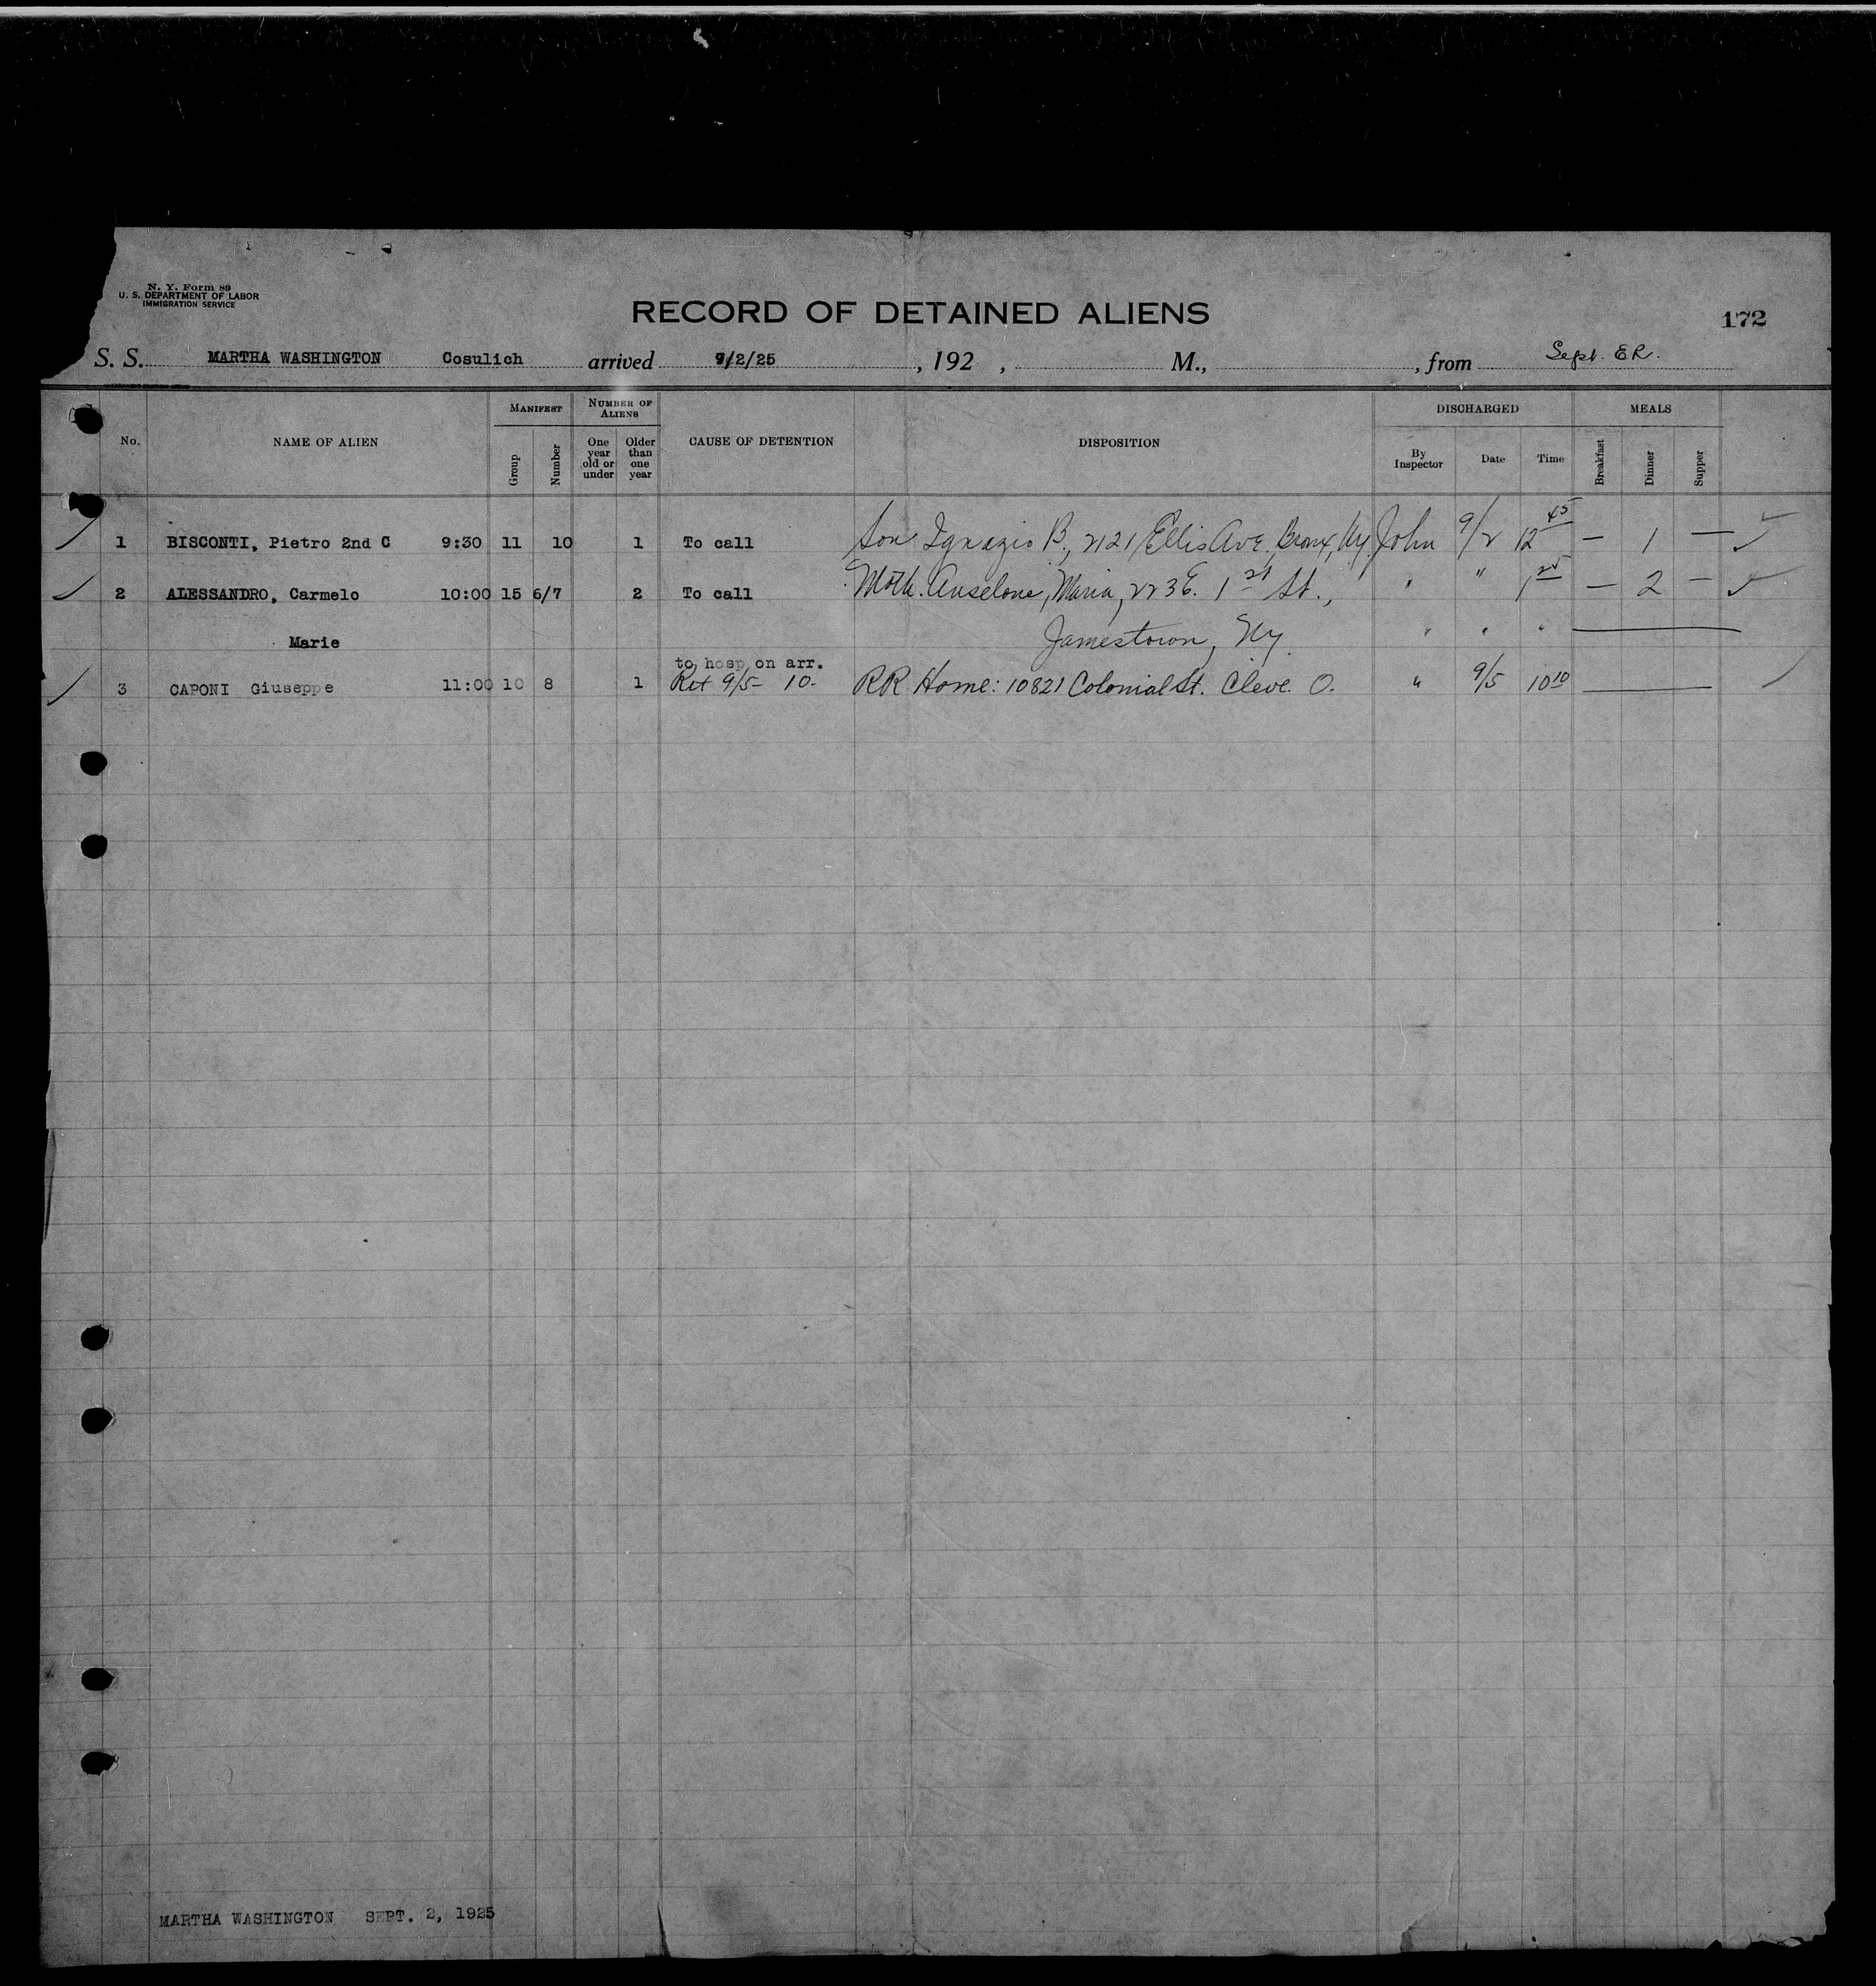 N. Y. Form 89
U. S. DEPARTMENT OF LABOR
IMMIGRATION SERVICE
RECORD OF DETAINED ALIENS
172
S. S. MARTHA WASHINGTON Cosulich arrived 9/2/25 , 192 , M., , from Sept. E.R.
No. NAME OF ALIEN MANIFEST Group Number NUMBER OF ALIENS One year old or under Older than one year CAUSE OF DETENTION DISPOSITION DISCHARGED By Inspector Date Time MEALS Breakfast Dinner Supper
1 BISCONTI, Pietro 2nd C 9:30 11 10 1 To call Son Ignazio B., 2121 Ellis Ave. Bronx, Ny. John 9/2 12 45 — 1 —
2 ALESSANDRO, Carmelo 10:00 15 6/7 2 To call Moth. Anselone, Maria, 223 E. 1st St., " " 1 25 — 2 —
Marie Jamestown, Ny. " " "
to hosp on arr.
3 CAPONI Giuseppe 11:00 10 8 1 Ret 9/5 - 10. RR Home: 10821 Colonial St. Cleve. O. " 9/5 10 10
MARTHA WASHINGTON SEPT. 2, 1925